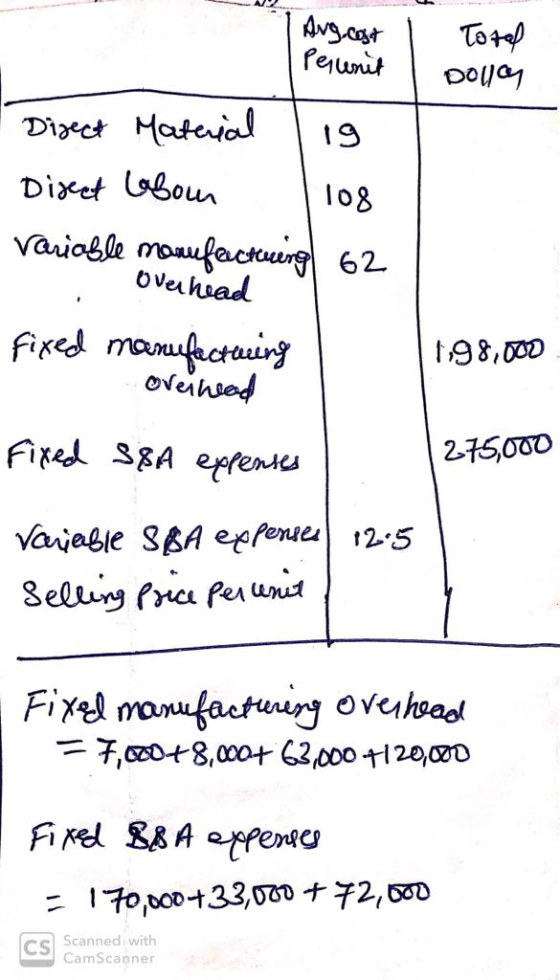 Avg.cost Total
Per unit Dollar
Direct Material 19
Direct Labour 108
Variable manufacturing 62
overhead
Fixed manufacturing 1,98,000
overhead
Fixed S&A expenses 275,000
Variable S&A expenses 12.5
Selling Price Per unit
Fixed manufacturing overhead
= 7,000+8,000+ 63,000+120,000
Fixed S&A expenses
= 170,000+33,000+72,000
CS Scanned with
CamScanner